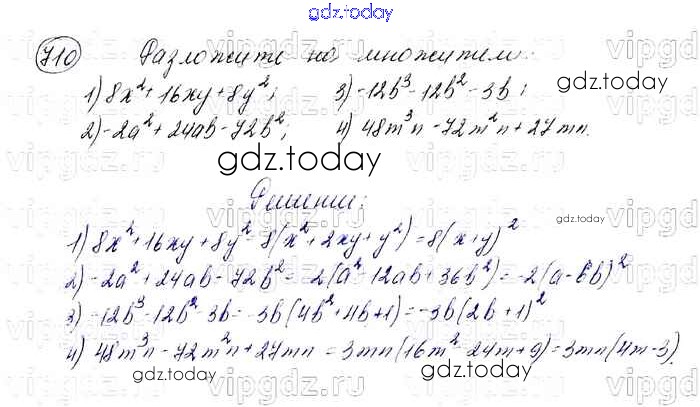 gdz.today
710 Разложите на множители:
1) 8x² + 16xy + 8y²; 3) -12b³ - 12b² - 3b;
gdz.today
2) -2a² + 24ab - 72b²; 4) 48m³n - 72m²n + 27mn.
gdz.today
Решение:
gdz.today
1) 8x² + 16xy + 8y² = 8(x² + 2xy + y²) = 8(x + y)²
2) -2a² + 24ab - 72b² = -2(a² - 12ab + 36b²) = -2(a - 6b)²
3) -12b³ - 12b² - 3b = -3b(4b² + 4b + 1) = -3b(2b + 1)²
4) 48m³n - 72m²n + 27mn = 3mn(16m² - 24m + 9) = 3mn(4m - 3)
gdz.today gdz.today
vipgdz.ru